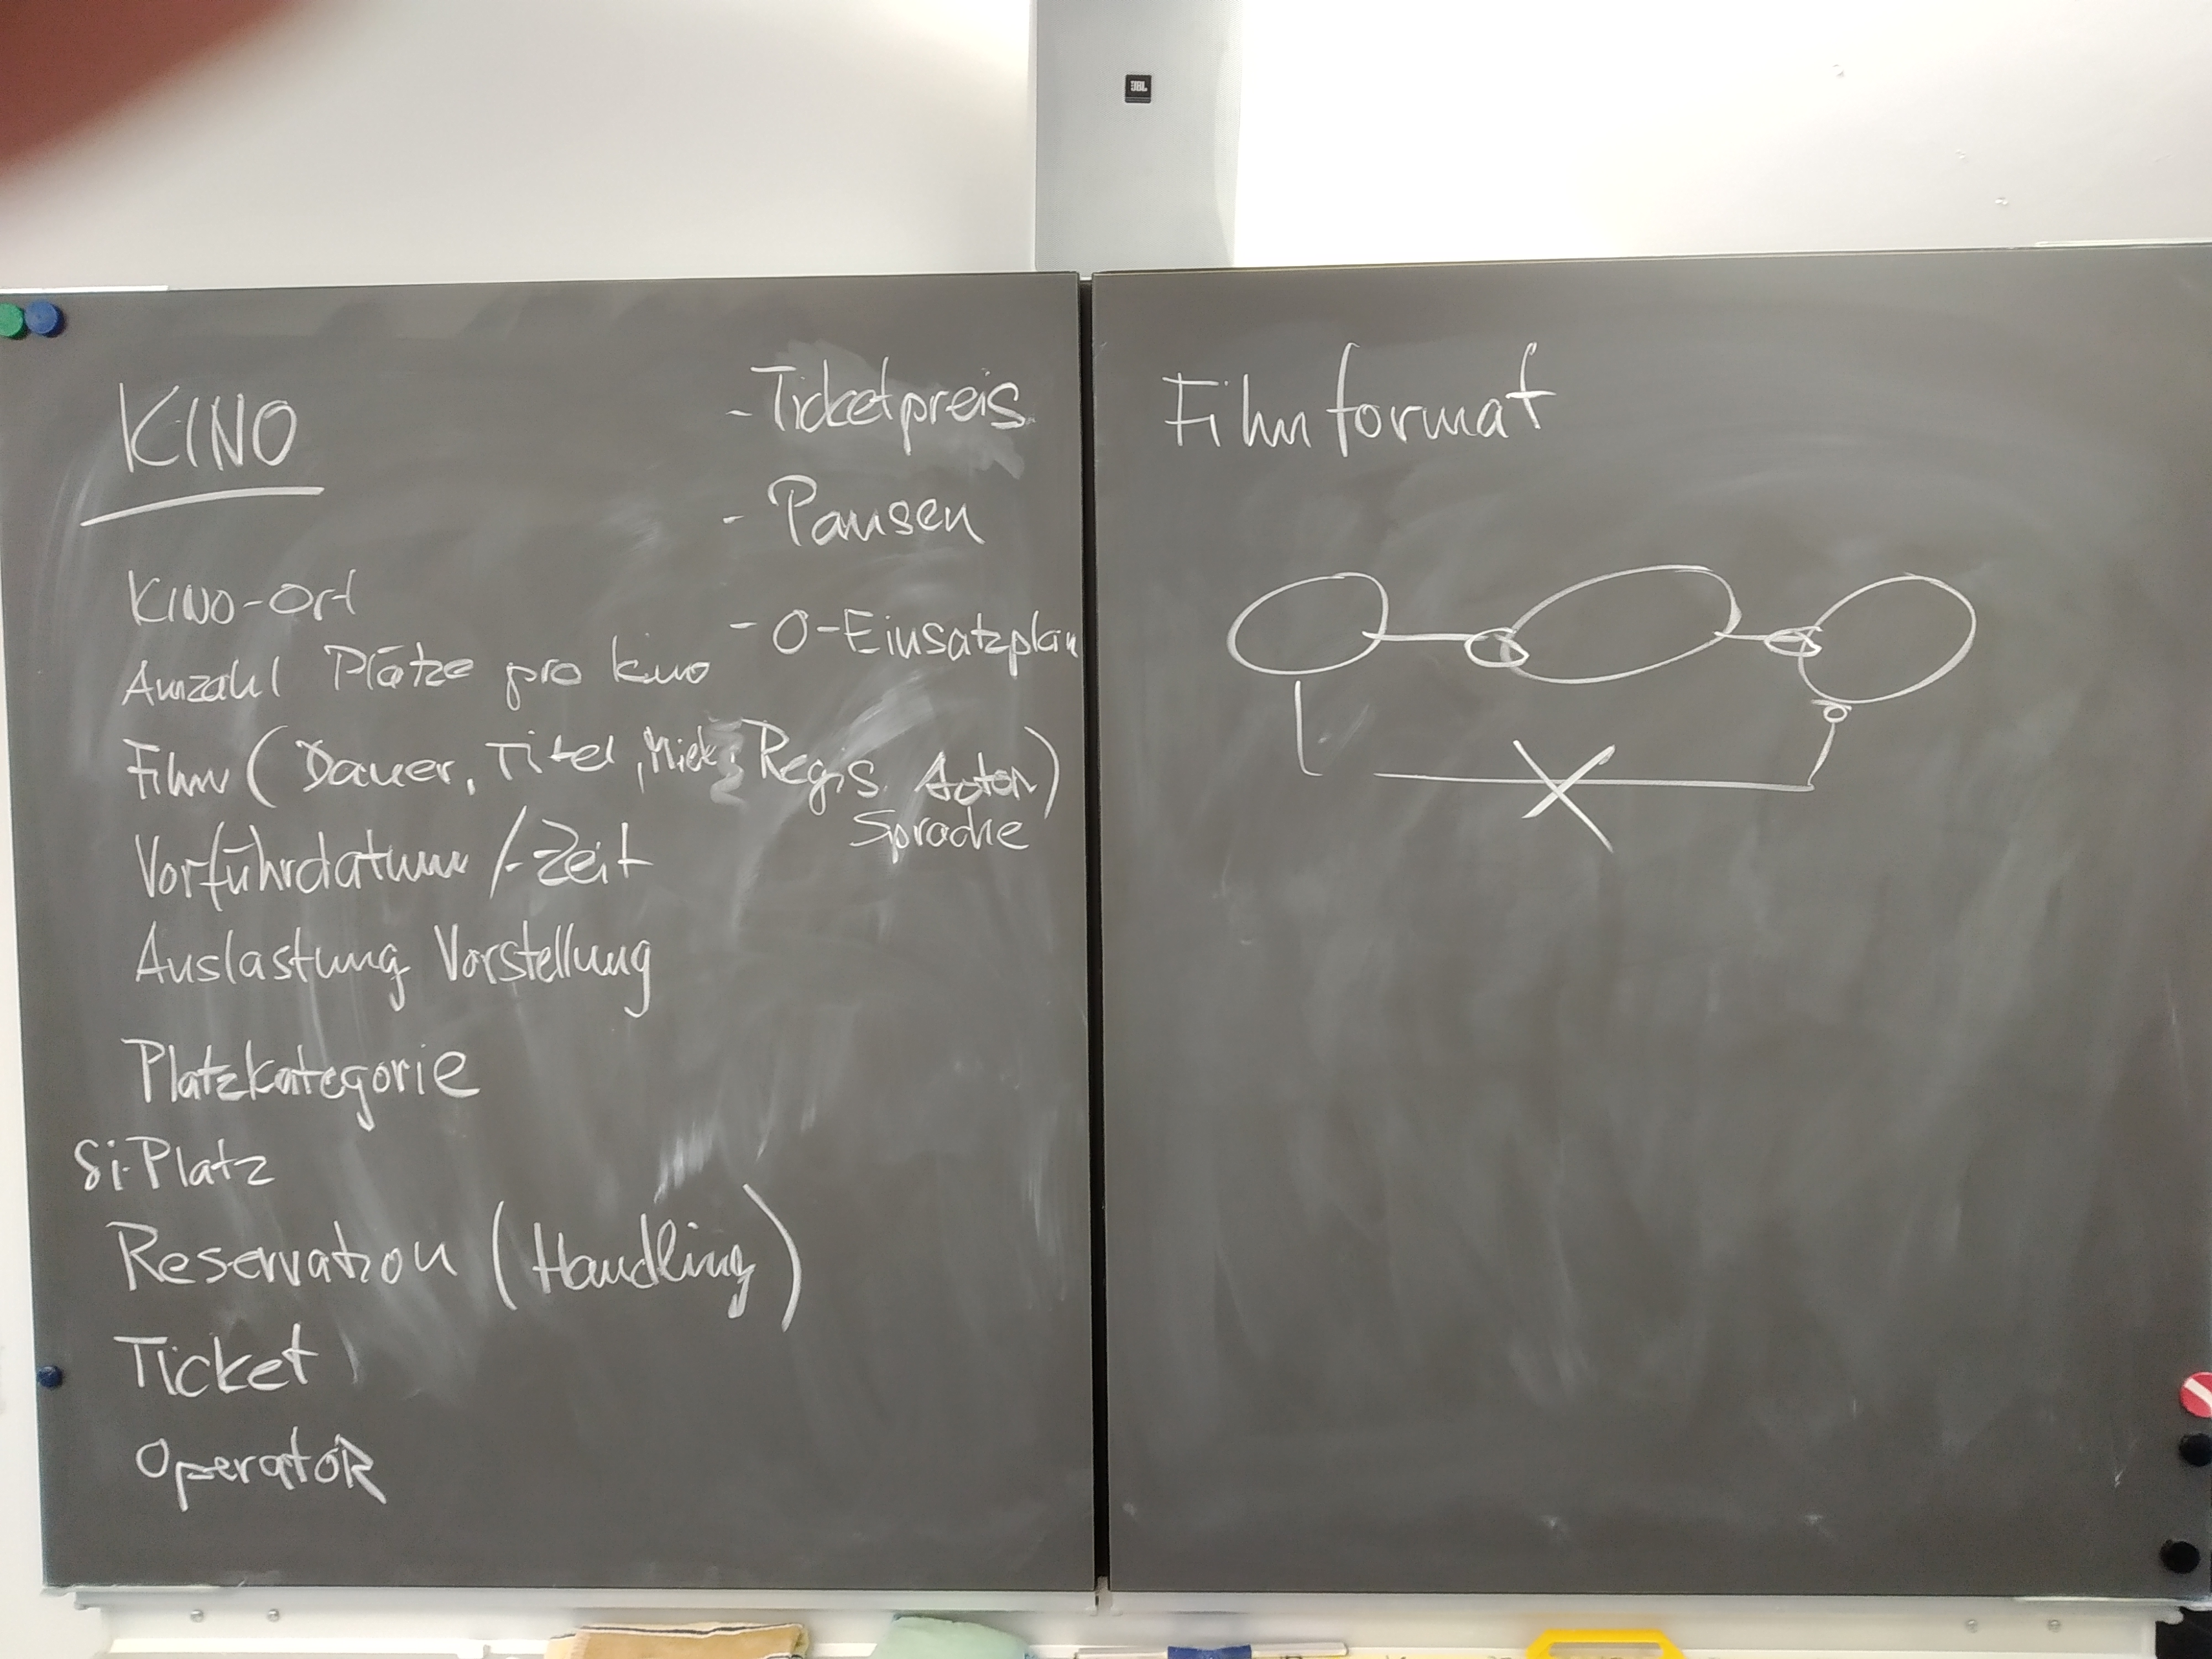 JBL
KINO
KINO-Ort
Anzahl Plätze pro Kino
Film (Dauer, Titel, Regis. Autor)
Sprache
Vorführdatum /-Zeit
Auslastung Vorstellung
Platzkategorie
Si-Platz
Reservation (Handling)
Ticket
OperatoR
- Ticketpreis
- Pausen
- O-Einsatzplan
Filmformat